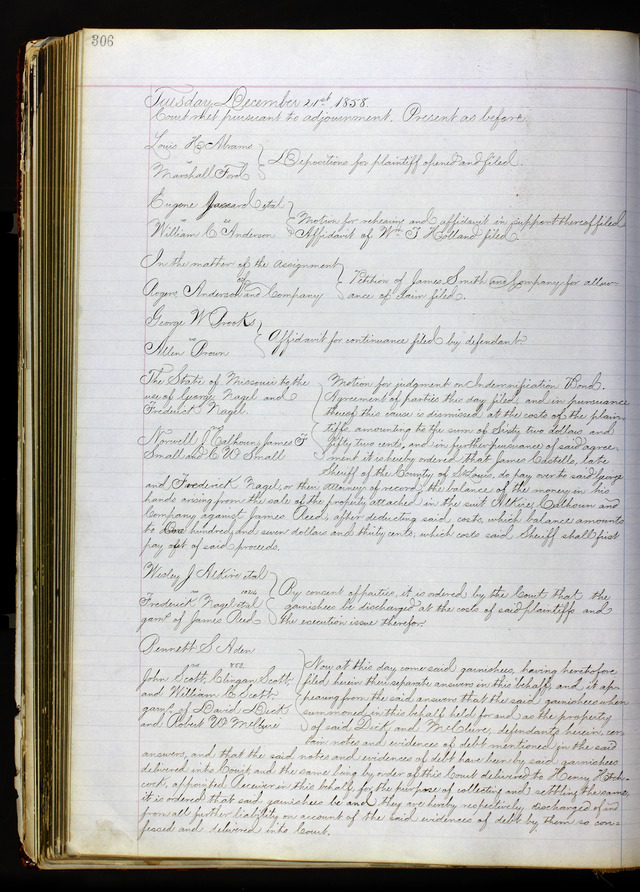 306
Tuesday December 21st 1858.
Court met pursuant to adjournment. Present as before.
Louis H Abrams
vs
Marshall Ford
Depositions for plaintiff opened and filed.
Eugene Jaccard etal
vs
William C Anderson
Motion for rehearing and affidavit in support thereof filed
Affidavit of Wm T Holland filed.
In the matter of the assignment
of
Rogers Anderson and Company
Petition of James Smith and Company for allow-
ance of claim filed.
George W Brooks
vs
Allen Brown
Affidavit for continuance filed by defendant.
The State of Missouri to the
use of George Nagel and
Frederick Nagel
vs
Norvell J Calhoun, James F
Small and E W Small
Motion for judgment on Indemnification Bond.
Agreement of parties this day filed, and in pursuance
thereof this cause is dismissed at the costs of the plain-
tiffs amounting to the sum of Sixty two dollars and
fifty two cents, and in further pursuance of said agree-
ment it is hereby ordered that James Castello, late
Sheriff of the County of St Louis, do pay over to said George
and Frederick Nagel, or their attorney of record, the balance of the money in his
hands arising from the sale of the property attached in the suit Alkire, Calhoun and
Company against James Reed, after deducting said costs, which balance amounts
to One hundred and seven dollars and thirty cents, which costs said Sheriff shall first
pay out of said proceeds.
Wesley J Alkire etal
vs
Frederick Nagel etal
garns of James Reed
By consent of parties, it is ordered by the Court that the
garnishees be discharged at the costs of said plaintiffs and
the execution issue therefor.
Bennett S Aden
vs
John Scott, Clingan Scott
and William E Scott
garns of David Dick
and Robert W McClure
Now at this day come said garnishees, having heretofore
filed herein their separate answers in this behalf, and it ap-
pearing from the said answers that the said garnishees when
summoned in this behalf held for and as the property
of said Dick and McClure, defendants herein cer-
tain notes and evidences of debt mentioned in the said
answers, and that the said notes and evidences of debt have been by said garnishees
delivered into Court, and the same being by order of this Court delivered to Henry Hitch-
cock, appointed Receiver in this behalf, for the purpose of collecting and settling the same,
it is ordered that said garnishees be and they are hereby respectively discharged of and
from all further liability on account of the said evidences of debt by them so con-
fessed and delivered into Court.